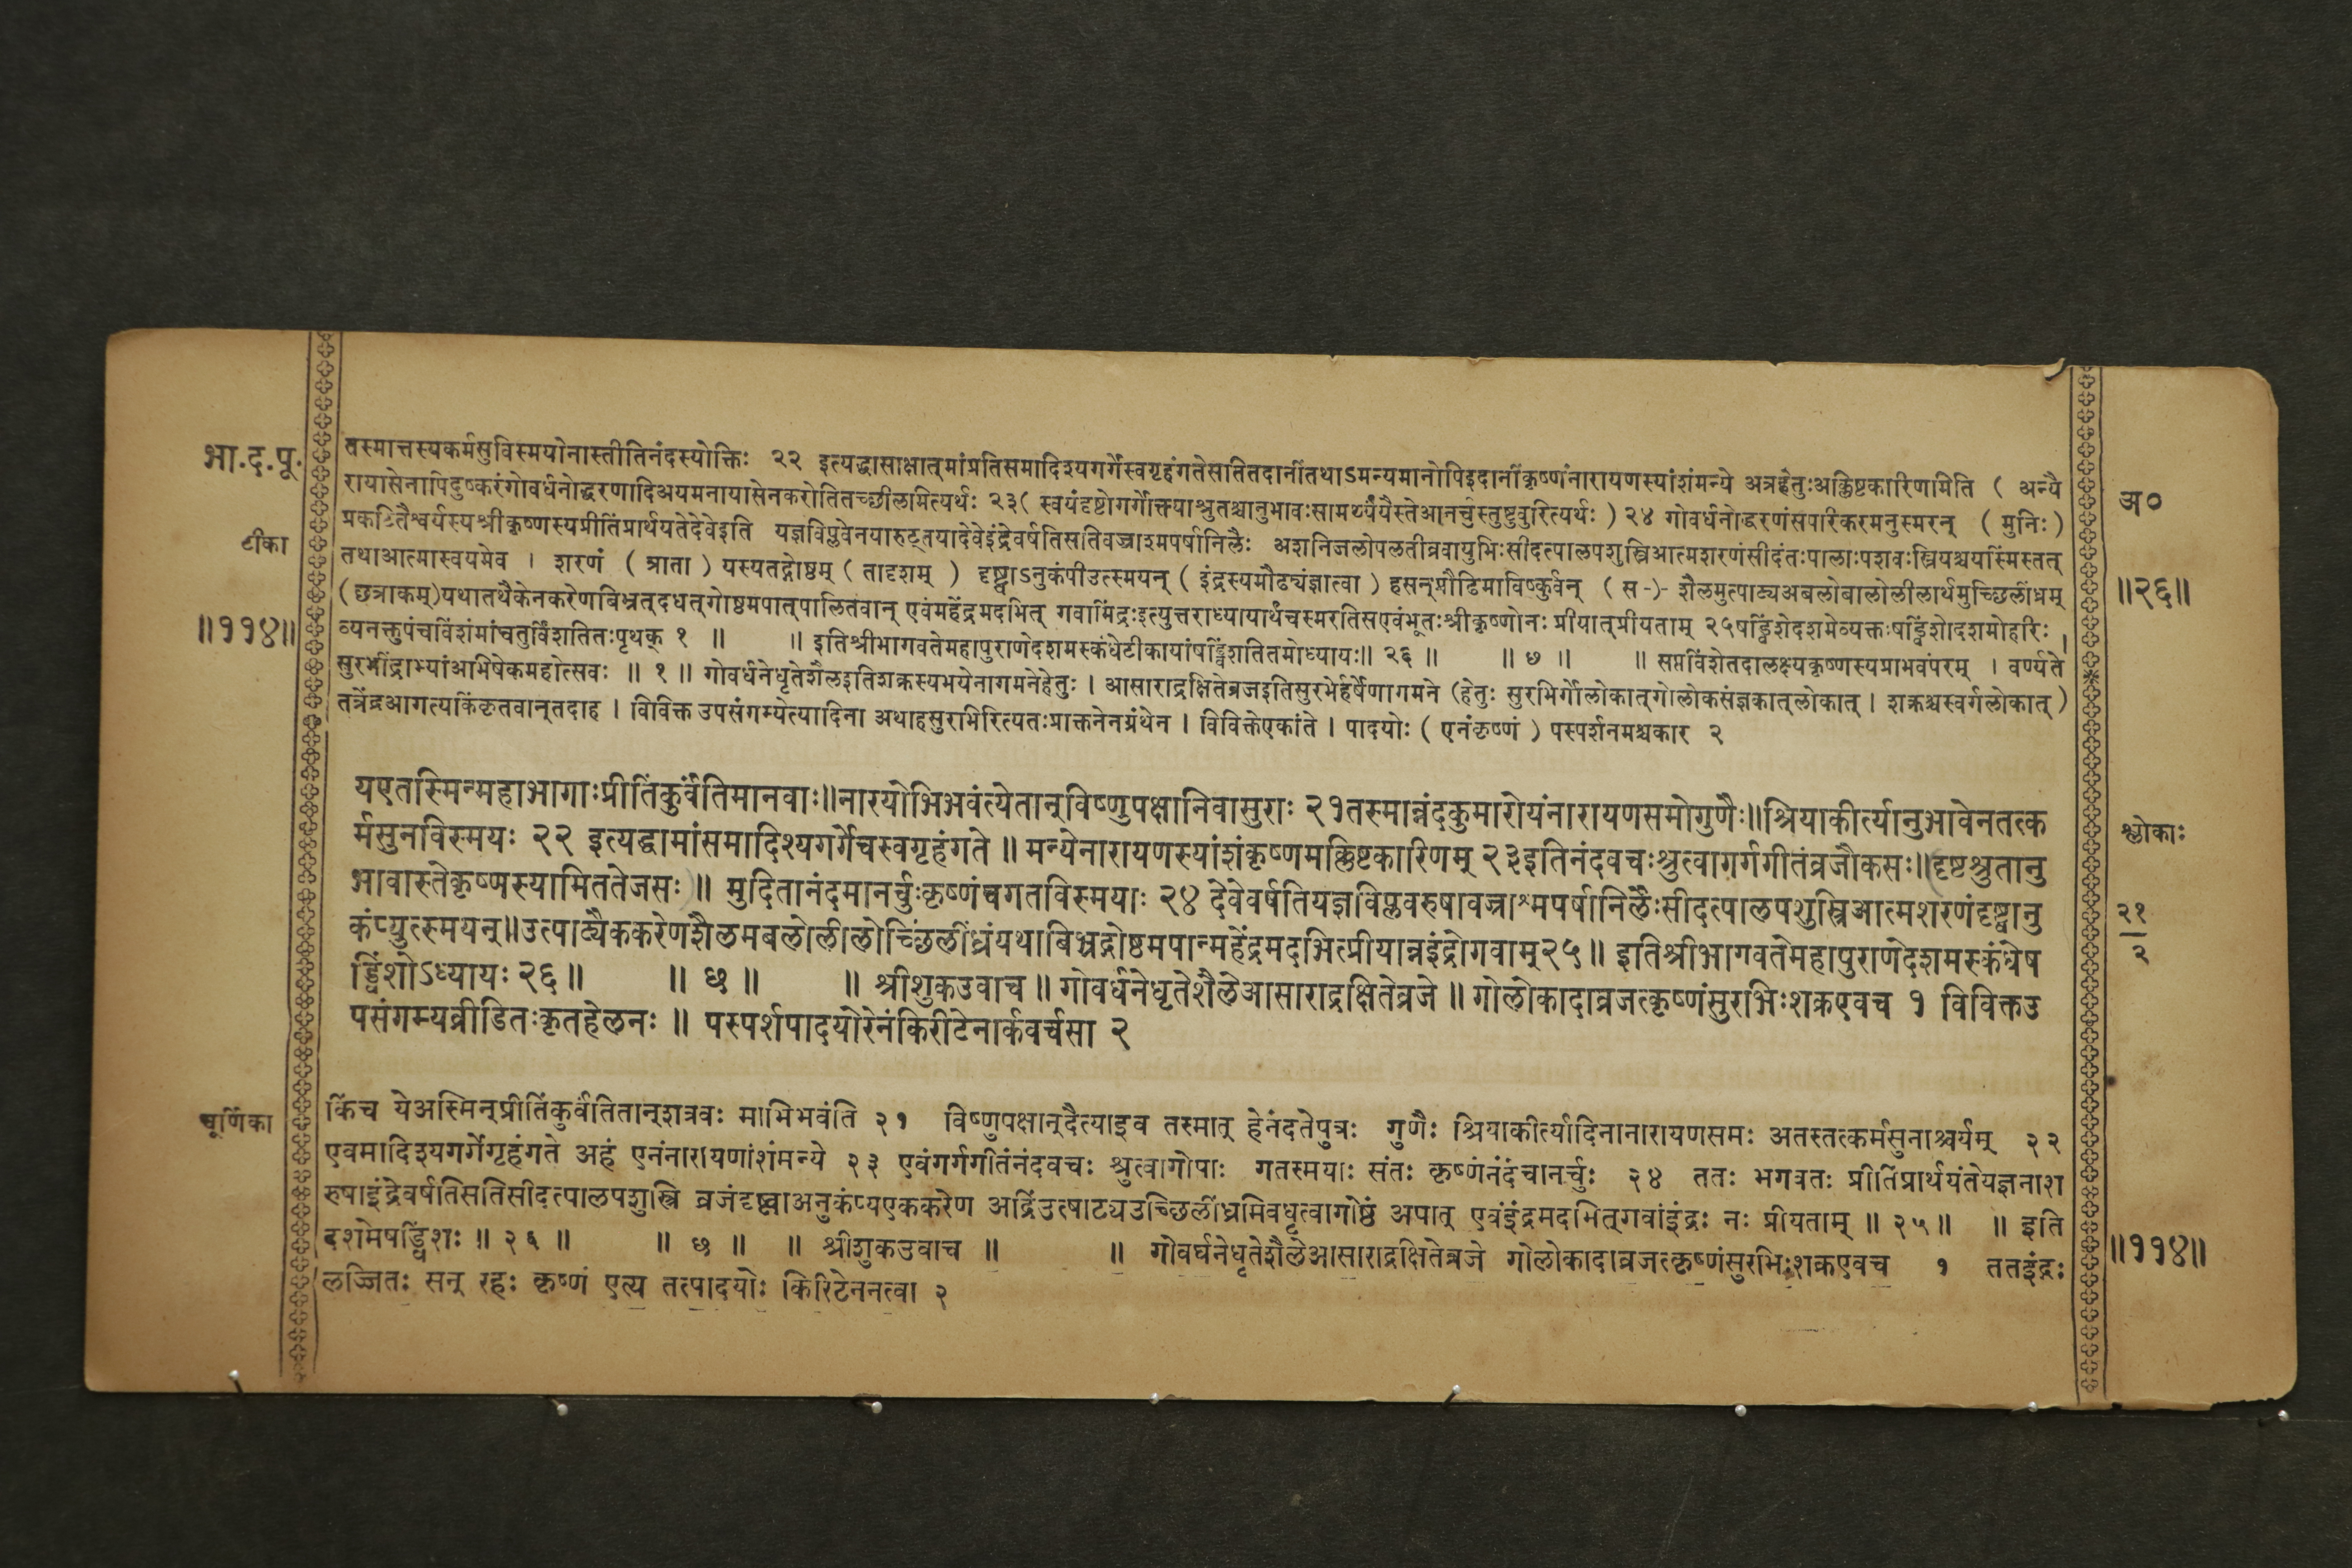 भा.द.पू.
टीका
॥११४॥
तस्मात्तस्यकर्मसुविस्मयोनास्तीतिनंदस्योक्तिः २२ इत्यद्धासाक्षात्मांप्रतिसमादिश्यगर्गेस्वगृहंगतेसतितदानींतथाऽमन्यमानोपिइदानींकृष्णंनारायणस्यांशंमन्ये अत्रहेतुःअक्लिष्टकारिणमिति ( अन्यै
रायासेनापिदुष्करंगोवर्धनोद्धरणादिअयमनायासेनकरोतितच्छीलमित्यर्थः २३( स्वयंदृष्टोगर्गोक्त्याश्रुतश्चानुभावःसामर्थ्यंयैस्तेआनर्चुस्तुष्टुवुरित्यर्थः ) २४ गोवर्धनोद्धरणंसपरिकरमनुस्मरन् ( मुनिः )
प्रकटितैश्वर्यस्यश्रीकृष्णस्यप्रीतिंप्रार्थयतेदेवेइति यज्ञविप्लवेनयारुट्तयादेवेइंद्रेवर्षतिसतिवज्राश्मपर्षानिलैः अशनिजलोपलतीव्रवायुभिःसीदत्पालपशुस्त्रिआत्मशरणंसीदंतःपालाःपशवःस्त्रियश्चयस्मिंस्तत्
तथाआत्मास्वयमेव । शरणं ( त्राता ) यस्यतद्गोष्ठम् ( तादृशम् ) दृष्ट्वाऽनुकंपीउत्स्मयन् ( इंद्रस्यमौढ्यंज्ञात्वा ) हसन्प्रौढिमाविष्कुर्वन् ( स -)- शैलमुत्पाट्यअबलोबालोलीलार्थमुच्छिलींध्रम्
(छत्राकम्)यथातथैकेनकरेणबिभ्रत्दधत्गोष्ठमपात्पालितवान् एवंमहेंद्रमदभित् गवामिंद्रःइत्युत्तराध्यायार्थंचस्मरतिसएवंभूतःश्रीकृष्णोनः प्रीयात्प्रीयताम् २५षड्विंशेदशमेव्यक्तःषड्विंशोदशमोहरिः ।
व्यनक्तुपंचविंशंमांचतुर्विंशतितःपृथक् १ ॥ ॥ इतिश्रीभागवतेमहापुराणेदशमस्कंधेटीकायांषड्विंशतितमोध्यायः॥ २६ ॥ ॥ छ ॥ ॥ सप्तविंशेतदालक्ष्यकृष्णस्यप्राभवंपरम् । वर्ण्यते
सुरभींद्राभ्यांआभिषेकमहोत्सवः ॥ १ ॥ गोवर्धनेधृतेशैलइतिशक्रस्यभयेनागमनेहेतुः । आसाराद्रक्षितेव्रजइतिसुरभेर्हर्षेणागमने (हेतुः सुरभिर्गोलोकात्गोलोकसंज्ञकात्लोकात् । शक्रश्चस्वर्गलोकात् )
तत्रेंद्रआगत्यकिंकृतवान्तदाह । विविक्त उपसंगम्येत्यादिना अथाहसुराभिरित्यतःप्राक्तनेनग्रंथेन । विविक्तेएकांते । पादयोः ( एनंकृष्णं ) पस्पर्शनमश्चकार २
अ०
॥२६॥
यएतास्मिन्महाभागाःप्रीतिंकुर्वंतिमानवाः॥नारयोभिभवंत्येतान्विष्णुपक्षानिवासुराः २१तस्मान्नंदकुमारोयंनारायणसमोगुणैः॥श्रियाकीर्त्यानुभावेनतत्क
र्मसुनविस्मयः २२ इत्यद्धामांसमादिश्यगर्गेचस्वगृहंगते ॥ मन्येनारायणस्यांशंकृष्णमक्लिष्टकारिणम् २३इतिनंदवचःश्रुत्वागर्गगीतंव्रजौकसः॥दृष्टश्रुतानु
भावास्तेकृष्णस्यामिततेजसः ॥ मुदितानंदमानर्चुःकृष्णंचगतविस्मयाः २४ देवेवर्षतियज्ञविप्लवरुषावज्राश्मपर्षानिलैःसीदत्पालपशुस्त्रिआत्मशरणंदृष्ट्वानु
कंप्युत्स्मयन्॥उत्पाट्यैककरेणशैलमबलोलीलोच्छिलींध्रंयथाबिभ्रद्गोष्ठमपान्महेंद्रमदभित्प्रीयान्नइंद्रोगवाम्२५॥ इतिश्रीभागवतेमहापुराणेदशमस्कंधेष
ड्विंशोऽध्यायः २६ ॥ ॥ छ ॥ ॥ श्रीशुकउवाच ॥ गोवर्धनेधृतेशैलेआसाराद्रक्षितेव्रजे ॥ गोलोकादाव्रजत्कृष्णंसुरभिःशक्रएवच १ विविक्तउ
पसंगम्यव्रीडितःकृतहेलनः ॥ पस्पर्शपादयोरेनंकिरीटेनार्कवर्चसा २
श्लोकाः
२१
२
चूर्णिका
किंच येअस्मिन्प्रीतिंकुर्वंतितान्शत्रवः माभिभवंति २१ विष्णुपक्षान्दैत्याइव तस्मात् हेनंदतेपुत्रः गुणैः श्रियाकीर्त्यादिनानारायणसमः अतस्तत्कर्मसुनाश्चर्यम् २२
एवमादिश्यगर्गेगृहंगते अहं एनंनारायणांशंमन्ये २३ एवंगर्गगीतंनंदवचः श्रुत्वागोपाः गतस्मयाः संतः कृष्णंनंदंचानर्चुः २४ ततः भगवतः प्रीतिंप्रार्थयंतेयज्ञनाश
रुषाइंद्रेवर्षतिसतिसीदत्पालपशुस्त्रि व्रजंदृष्ट्वाअनुकंप्यएककरेण अद्रिंउत्पाट्यउच्छिलींध्रमिवधृत्वागोष्ठं अपात् एवंइंद्रमदभित्गवांइंद्रः नः प्रीयताम् ॥ २५ ॥ ॥ इति
दशमेषड्विंशः ॥ २६ ॥ ॥ छ ॥ ॥ श्रीशुकउवाच ॥ ॥ गोवर्धनेधृतेशैलेआसाराद्रक्षितेव्रजे गोलोकादाव्रजत्कृष्णंसुरभिःशक्रएवच १ ततइंद्रः
लज्जितः सन् रहः कृष्णं एत्य तत्पादयोः किरिटेननत्वा २
॥११४॥